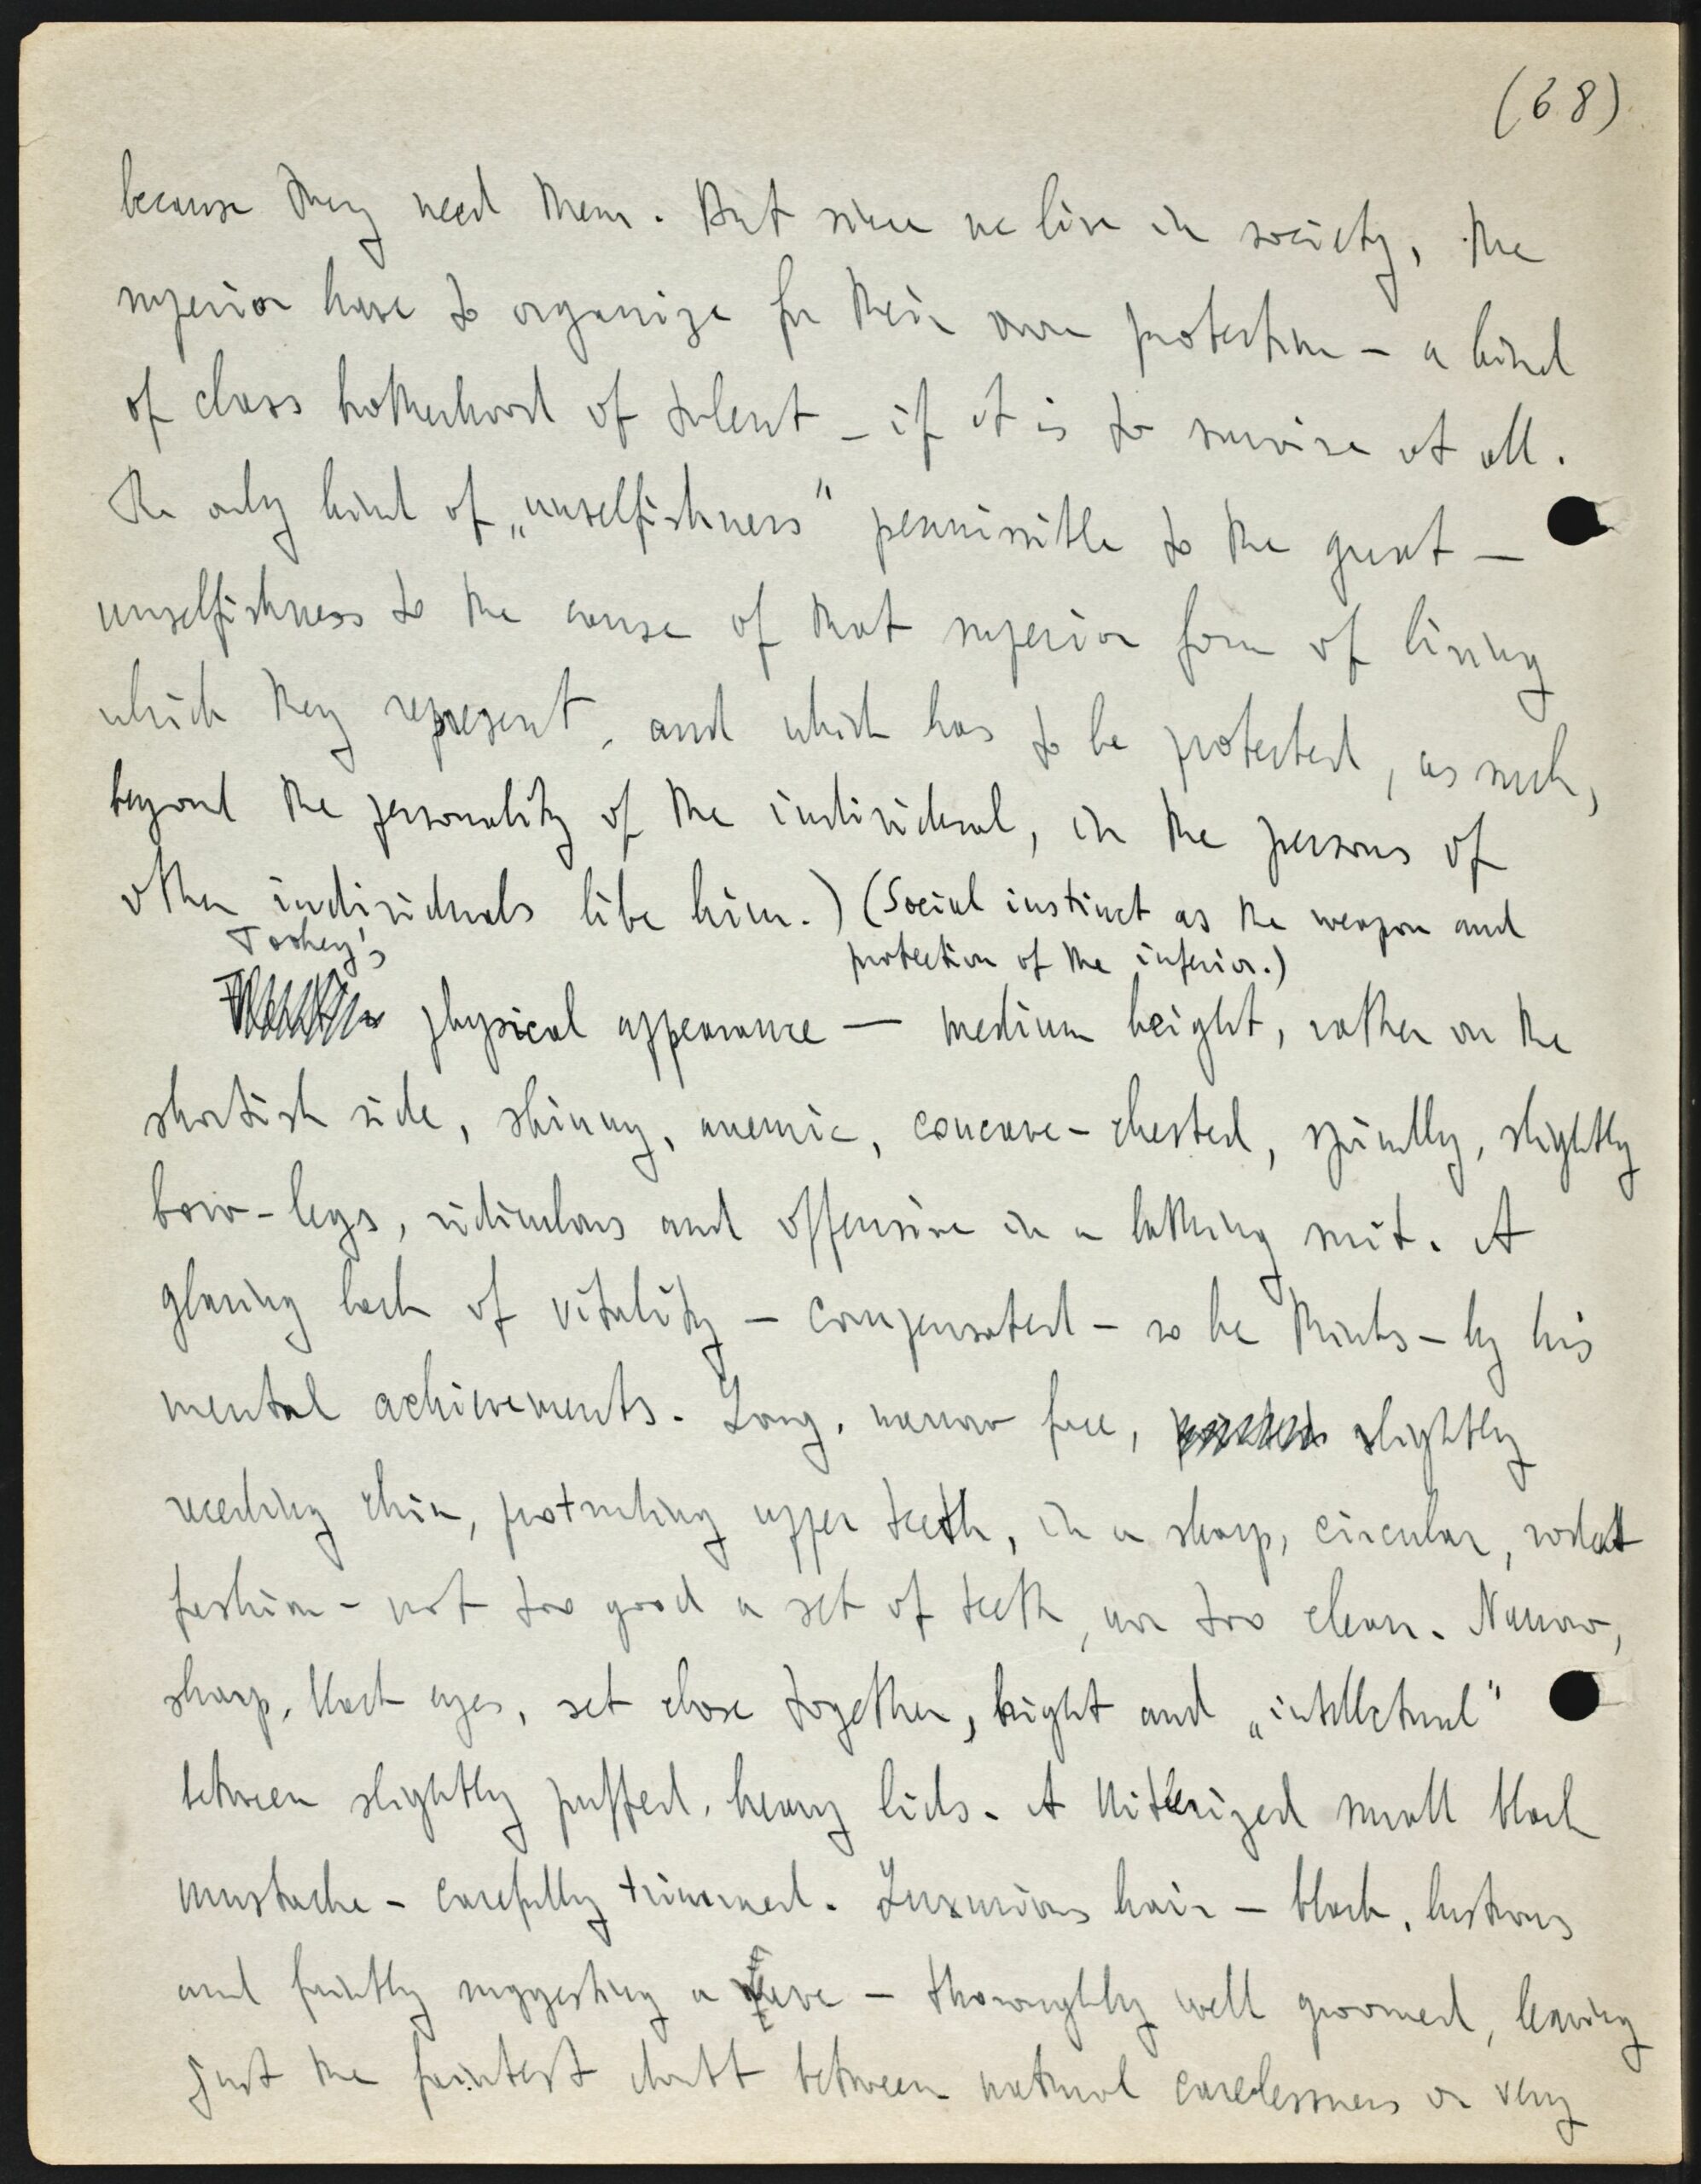 (68)
because they need them. But since we live in society, the
superior have to organize for their own protection – a kind
of class brotherhood of talent – if it is to survive at all.
The only kind of „unselfishness" permissible to the great –
unselfishness to the cause of that superior form of living
which they represent, and which has to be protected, as such,
beyond the personality of the individual, in the persons of
other individuals like him.) (Social instinct as the weapon and
protection of the inferior.)
Toohey's
physical appearance — medium height, rather on the
shortish side, skinny, anemic, concave-chested, spindly, slightly
bow-legs, ridiculous and offensive in a bathing suit. A
glaring lack of vitality – compensated – so he thinks – by his
mental achievements. Long, narrow face, slightly
receding chin, protruding upper teeth, in a sharp, circular, rodent
fashion – not too good a set of teeth, nor too clean. Narrow,
sharp, black eyes, set close together, bright and „intellectual"
between slightly puffed, heavy lids. A Hitlerized small black
mustache – carefully trimmed. Luxurious hair – black, lustrous
and faintly suggesting a wave – thoroughly well groomed, leaving
just the faintest doubt between natural carelessness or very